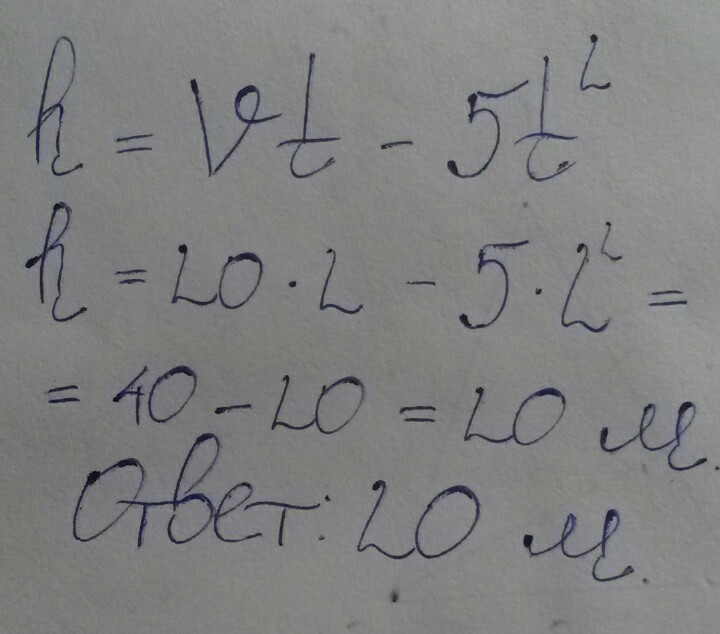 h = Vt - 5t²
h = 20 · 2 - 5 · 2² =
= 40 - 20 = 20 м.
Ответ: 20 м.